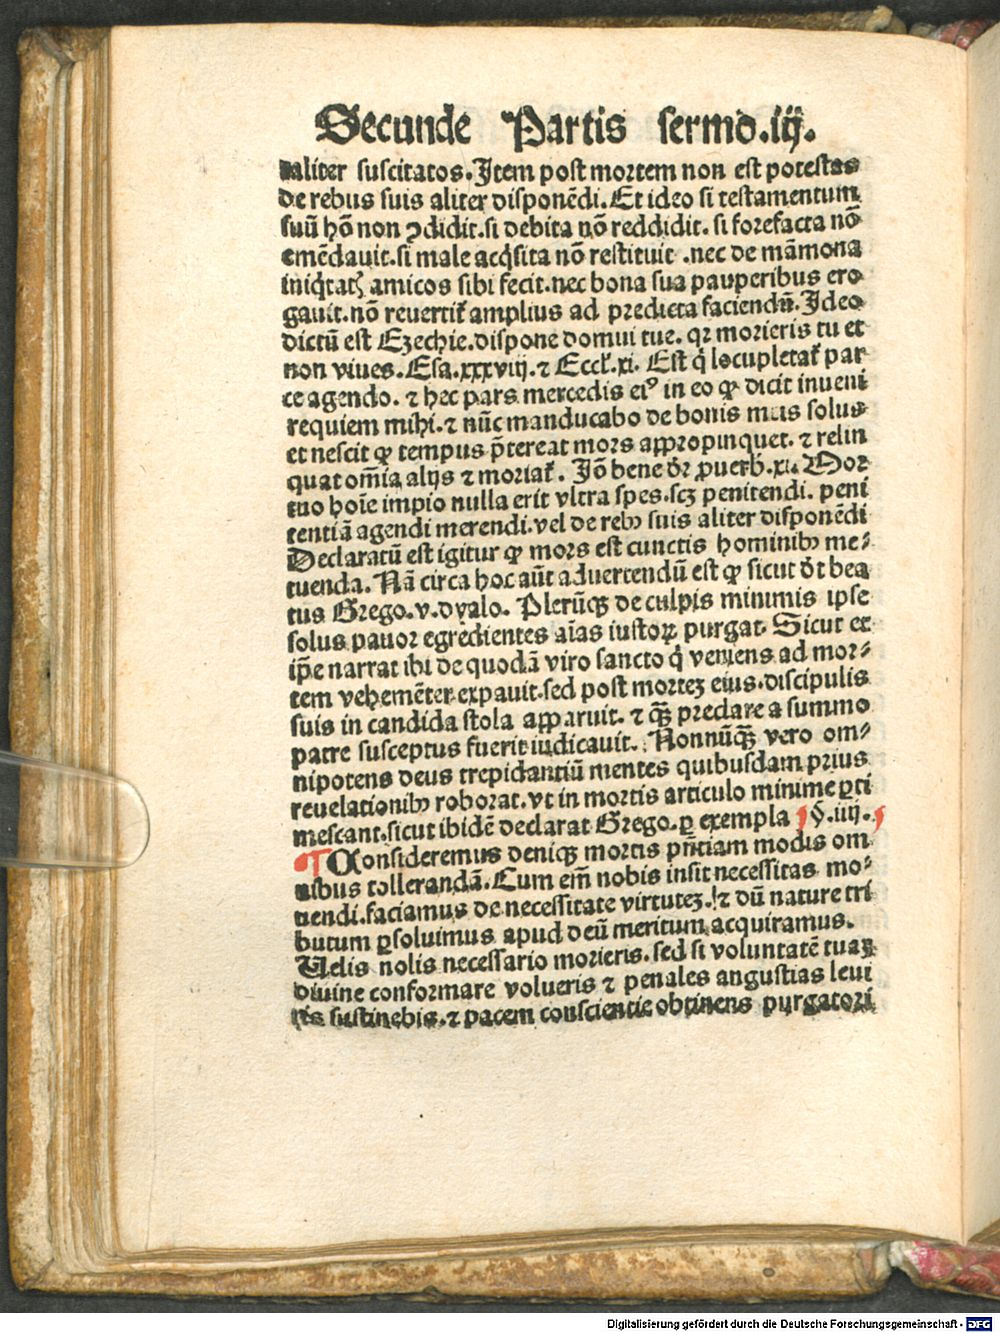 Secunde Partis sermo.iij.
naliter suscitatos. Item post mortem non est potestas
de rebus suis aliter disponēdi. Et ideo si testamentum
suū hō non ꝯdidit. si debita nō reddidit. si forefacta nō
emēdauit. si male acq̇sita nō restituit .nec de māmona
iniq̇tatꝭ amicos sibi fecit. nec bona sua pauperibus ero
gauit. nō reuertit᷑ amplius ad predicta faciendū. Ideo
dictū est Ezechie. dispone domui tue. qꝛ morieris tu et
non viues. Esa.xxxviij. ⁊ Eccl᷑.xi. Est q̇ locupletat᷑ par
ce agendo. ⁊ hec pars mercedis eiꝰ in eo ꝙ dicit inueni
requiem mihi. ⁊ nūc manducabo de bonis meis solus
et nescit ꝙ tempus p̄tereat mors appropinquet. ⁊ relin
quat om̄ia alijs ⁊ moriat᷑. Iō bene dr̄ ꝓuerb̄.xi. Mor
tuo hoīe impio nulla erit vltra spes. scꝫ penitendi. peni
tentiā agendi merendi. vel de rebꝰ suis aliter disponēdi
Declaratū est igitur ꝙ mors est cunctis hominibꝰ me⸗
tuenda. Nā circa hoc aūt aduertendū est ꝙ sicut dt̄ bea
tus Grego. v. dyalo. Plerūqꝫ de culpis minimis ipse
solus pauor egredientes aīas iustoꝝ purgat. Sicut et
ip̄e narrat ibi de quodā viro sancto q̇ veniens ad mor⸗
tem vehemēter expauit. sed post morteꝫ eius. discipulis
suis in candida stola apparuit. ⁊ qꝫ̄ preclare a summo
patre susceptus fuerit iudicauit. Nonnūqꝫ̄ vero om⸗
nipotens deus trepidantiū mentes quibusdam prius
reuelationibꝰ roborat. vt in mortis articulo minime ꝑti
mescant. sicut ibidē declarat Grego. ꝑ exempla §.iiij.
¶ Consideremus deniqꝫ mortis pn̄tiam modis om
nibus tollerandā. Cum em̄ nobis insit necessitas mo⸗
riendi. faciamus de necessitate virtuteꝫ. ⁊ dū nature tri
butum ꝑsoluimus apud deū meritum acquiramus.
Uelis nolis necessario morieris. sed si voluntatē tuaꝫ
diuine conformare volueris ⁊ penales angustias leui
us sustinebis. ⁊ pacem conscientie obtinens purgatori
Digitalisierung gefördert durch die Deutsche Forschungsgemeinschaft - DFG